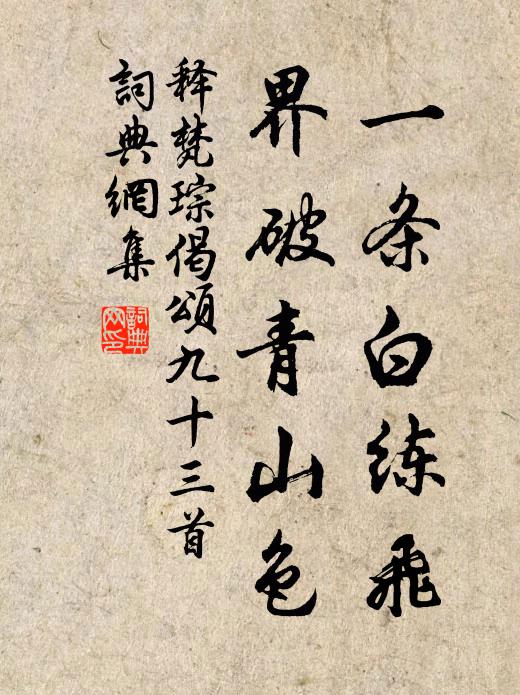 一条白练飛
界破青山色
释梵琮偈颂九十三首
詞典網集
詞典网印